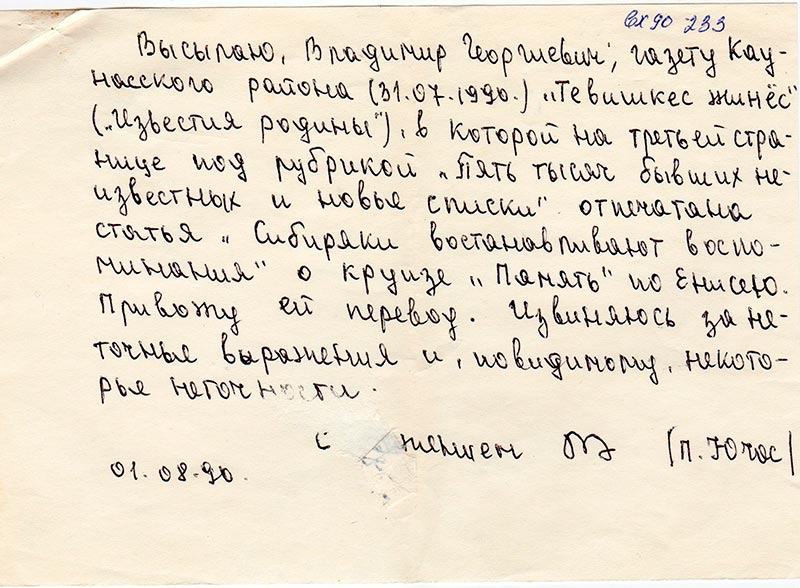 Вх90 233
Высылаю, Владимир Георгиевич, газету Кау-
насского района (31.07.1990.) „Тевишкес жинёс"
(„Известия родины"), в которой на третьей стра-
нице под рубрикой „Пять тысяч бывших не-
известных и новые списки" отпечатана
статья „Сибиряки востанавливают воспо-
минания" о круизе „Память" по Енисею.
Привожу ей перевод. Извиняюсь за не-
точные выражения и, повидимому, некото-
рые неточности.
С (П. Ючас)
01.08.90.